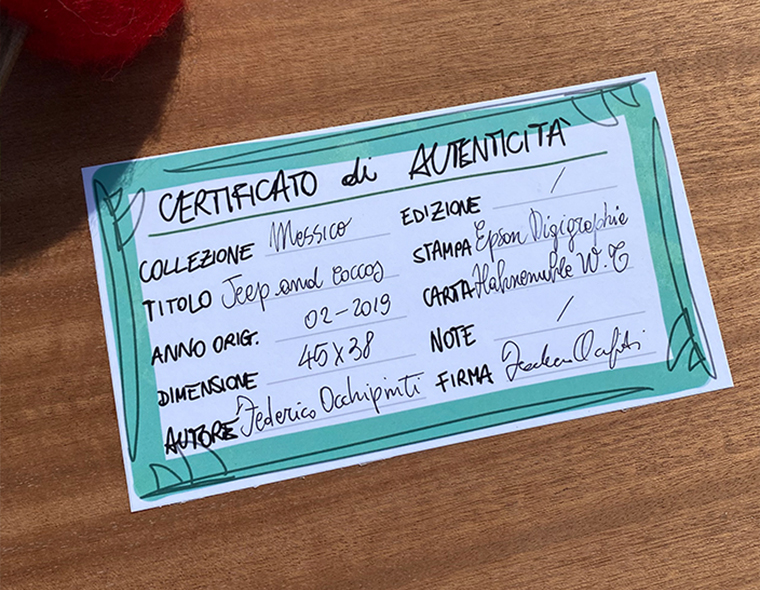 CERTIFICATO di AUTENTICITÀ
COLLEZIONE Messico
TITOLO Jeep and coccos
ANNO ORIG. 02-2019
DIMENSIONE 45x38
AUTORE Federico Occhipinti
EDIZIONE /
STAMPA Epson Digigraphie
CARTA Hahnemuhle W.T
NOTE /
FIRMA